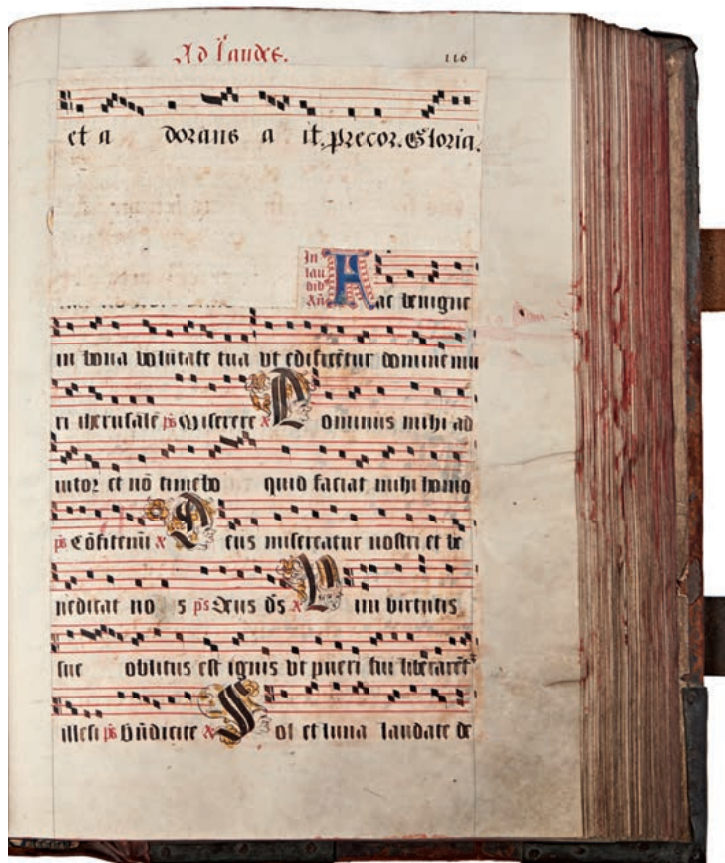 Ad laudes. 116
et a dorans a it. precor. Gloria.
In
lau
dib
Añ
Fac benigne
in bona volũtate tua vt edificẽtur domine mu
ri iherusalẽ ps Miserere Dominus mihi ad
iutor et nõ timebo quid faciat mihi homo
ps Cõfitemi Deus misereatur nostri et be
nedicat no s ps Deus ds Vim virtutis
sue oblitus est ignis vt pueri sui liberarẽt
illesi ps Bñdicite Sol et luna laudate de